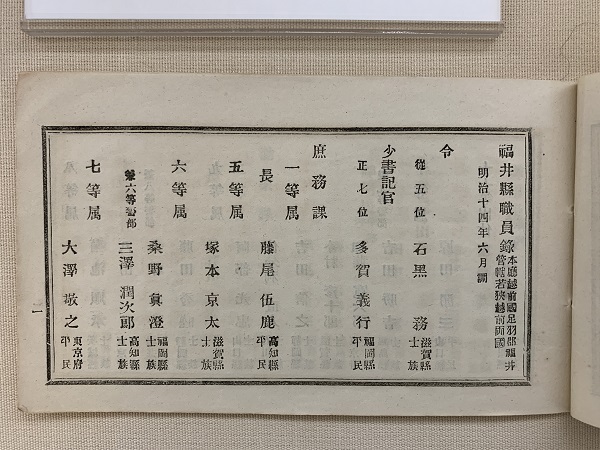 福井縣職員錄 本廳越前國足羽郡福井 管轄若狹越前兩國
明治十四年六月調
令 從五位 石黑務 滋賀縣士族
少書記官 正七位 多賀義行 福岡縣平民
庶務課
一等属
長 藤尾伍鹿 高知縣平民
五等属 塚本京太 滋賀縣士族
六等属 桑野眞澄 福岡縣士族
兼六等警部 三澤潤次郎 高知縣士族
七等属 大澤敬之 東京府平民
一